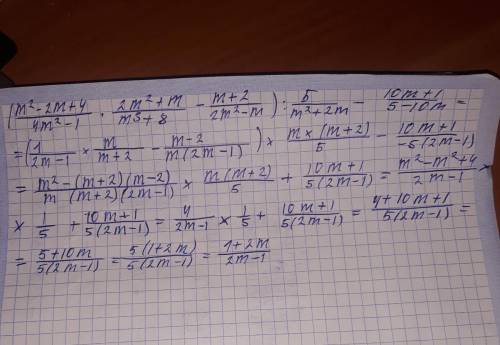 (m²-2m+4/4m²-1 · 2m²+m/m³+8 - m+2/2m²-m) : 5/m²+2m - 10m+1/5-10m =
= (1/2m-1 × m/m+2 - m-2/m(2m-1)) × m×(m+2)/5 - 10m+1/-5(2m-1)
= m²-(m+2)(m-2)/m(m+2)(2m-1) × m(m+2)/5 + 10m+1/5(2m-1) = m²-m²+4/2m-1 ×
× 1/5 + 10m+1/5(2m-1) = 4/2m-1 × 1/5 + 10m+1/5(2m-1) = 4+10m+1/5(2m-1) =
= 5+10m/5(2m-1) = 5(1+2m)/5(2m-1) = 1+2m/2m-1